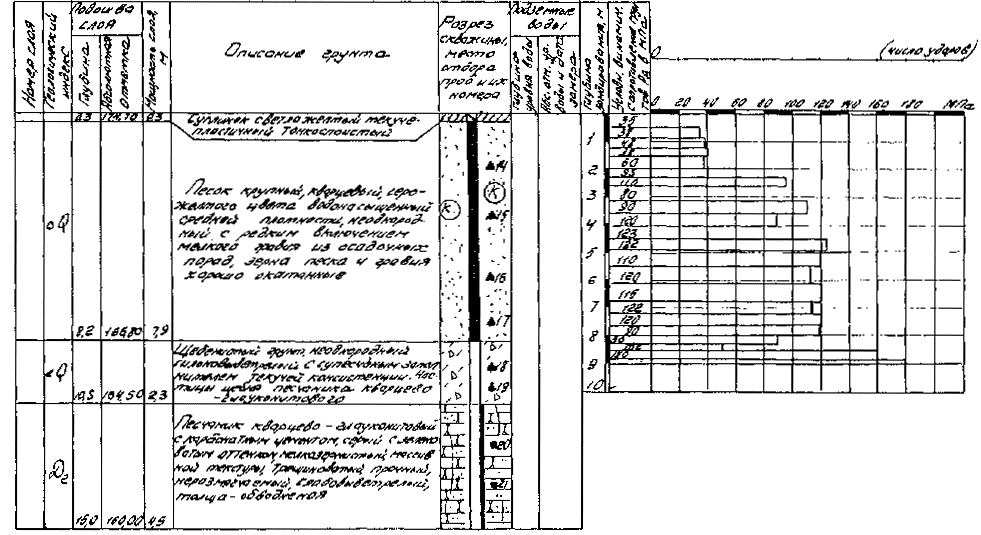 Номер слоя
Геологический индекс
Подошва слоя
Глубина
Абсолютная отметка
Мощность слоя, м
Описание грунта
Разрез скважины, место отбора проб и их номера
Подземные воды
Глубина
воды
замера
Глубина зондирования, м
0
(число ударов)
0 20 40 60 80 100 120 140 160 180 МПа
0,3 174,70 0,3
Суглинок светложелтый текуче-
пластичный тонкослоистый
aQ
Песок крупный, кварцевый, серо-
желтого цвета водонасыщенный
средней плотности, неоднород-
ный с редким включением
мелкого гравия из осадочных
пород, зерна песка и гравия
хорошо окатанные
8,2 166,80 7,9
К
К
14
15
16
17
Q
Щебенистый грунт, неоднородный
сильновыветрелый с супесчаным запол
нителем текучей консистенции. Час
тицы щебня песчаника кварцево
-глауконитового
10,5 164,50 2,3
18
19
D₂
Песчаник кварцево-глауконитовый
с карбонатным цементом, серый с зелено
ватым оттенком, мелкозернистый, массив
ной текстуры, трещиноватый, прочный,
неразмягчаемый, слабовыветрелый,
толща - обводненная
15,0 160,00 4,5
20
21
1
2
3
4
5
6
7
8
9
10
35
38
48
38
60
93
110
80
90
120
123
132
110
120
115
122
120
80